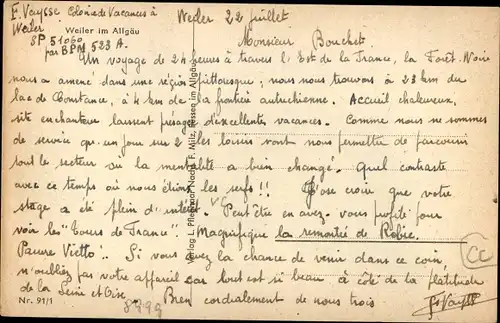 F. Veysse Colonie de Vacances à
Weiler
SP 51060
par BPM 523 A.
Weiler im Allgäu
Weiler 22 juillet
Monsieur Bouchet
Un voyage de 24 heures à travers l'Est de la France, la Forêt Noire
nous a amené dans une région pittoresque; nous nous trouvons à 23 km du
lac de Constance, à 4 km de la frontière autrichienne. Accueil chaleureux,
site enchanteur laissent présager d'excellentes vacances. Comme nous ne sommes
de service qu'un jour sur 2 les loisirs vont nous permettre de parcourir
tout le secteur où la mentalité a bien changé. Quel contraste
avec ce temps où nous étions les serfs!! J'ose croire que votre
stage a été plein d'intérêt. Peut être en avez-vous profité pour
voir les "Tours de France". Magnifique la remontée de Robic.
Pauvre Vietto. Si vous avez la chance de venir dans ce coin
n'oubliez pas votre appareil car tout est si beau à côté de la platitude
de la Seine et Oise. Bien cordialement de nous trois
F. Veysse
Verlag L. Pfledrer Nachf. F. Milz, Nessee im Allgäu
Nr. 91/1
8999
CC